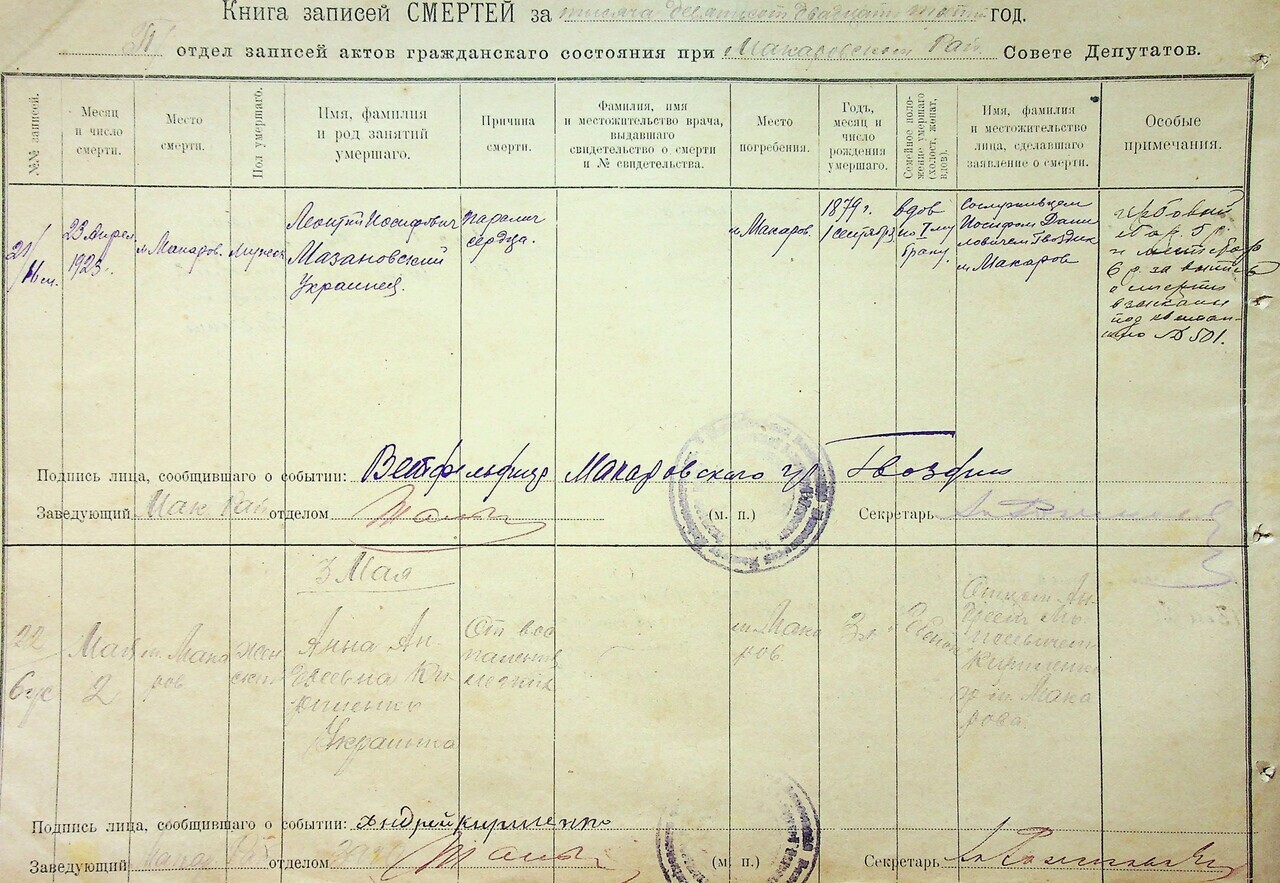 Книга записей СМЕРТЕЙ за тысяча девятьсот двадцать год.
отдел записей актов гражданскаго состояния при Макаровском Рай. Совете Депутатов.
№№ записей.
Месяц
и число
смерти.
Место
смерти.
Пол умершаго.
Имя, фамилия
и род занятий
умершаго.
Причина
смерти.
Фамилия, имя
и местожительство врача,
выдавшаго
свидетельство о смерти
и № свидетельства.
Место
погребения.
Годъ,
месяц и
число
рождения
умершаго.
Семейное поло-
жение умершаго
(холост, женат,
вдов).
Имя, фамилия
и местожительство
лица, сделавшаго
заявление о смерти.
Особые
примечания.
21/
23 Апрел
1925 г.
м. Макаров.
Мужеск
Леонтий Иосифович
Мазановский
Украинец.
паралич
сердца.
м Макаров.
1879 г.
1 сентября
вдов
по 1 му
браку.
Сослуживцем
Иосифом Дани
ловичем Гвоздик
м Макаров
гербовый
сбор
6 р. за выпись
о смерти
взысканы
под квитан-
цию № 501.
Подпись лица, сообщившаго о событии: Макаровского Гвоздик
Заведующий Мак Рай отделом (м. п.) Секретарь
3 Мая
22
6
Мая
2
м. Мака
ров
жен
ский
Анна Ан-
дреевна Ки
риленко
Украинка
От вос
паления
легких
м. Мака
ров.
3 л.
Отцем Ан-
дреем
Кириленко
м. Мака
рова.
Подпись лица, сообщившаго о событии: Андрей Кириленко
Заведующий Макар. Рай отделом (м. п.) Секретарь